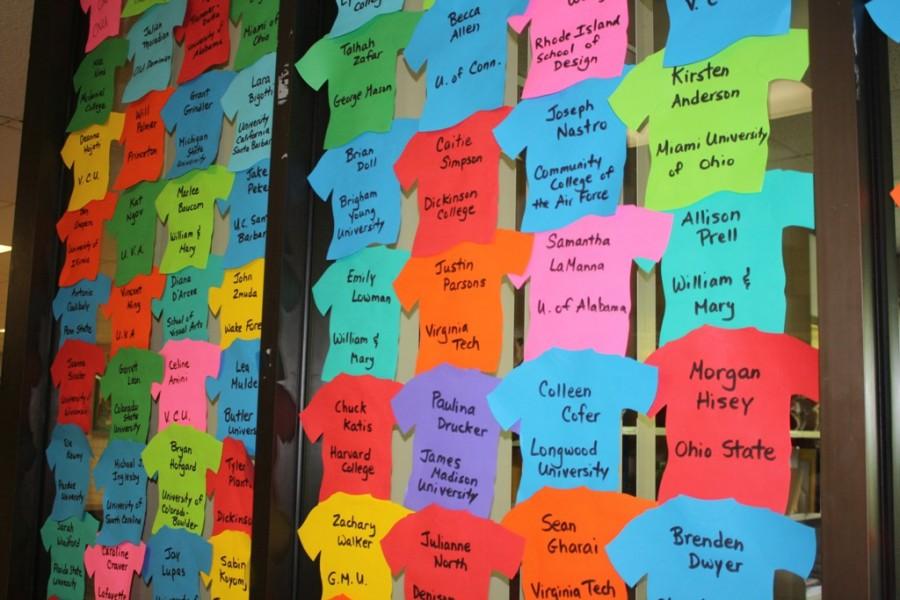 Julian
Old Dominion
University of
Alabama
Miami of
Ohio
College
Will
Palmer
Princeton
Grant
Grindler
Michigan
State
University
Lara
Bigotti
University
California
Santa Barbar
Deanna
V.C.U.
University of
Illinois
Kat
Ngov
U.V.A
Marlee
Baucom
William &
Mary
Jake
Pete
U.C. San
Barbar
Antonio
Penn State
Vincent
King
U.V.A
Diana
D'Arcee
School of
Visual Arts
John
Zmuda
Wake Fore
University of
Wisconsin
Garrett
Leon
Colorado
State
University
Celine
Amini
V.C.U.
Lea
Mulde
Butler
Univers
Purdue
University
Michael
Inglesby
University of
South Carolina
Bryan
Hofgard
University of
Colorado-
Boulder
Tyler
Plant
Dickinso
Sarah
Woodford
Florida State
University
Caroline
Craver
Lafayette
Jay
Lupas
Sabin
Koyom
Talhah
Zafar
George Mason
Becca
Allen
U. of Conn.
Rhode Island
School of
Design
Kirsten
Anderson
Miami University
of Ohio
Brian
Doll
Brigham
Young
University
Caitie
Simpson
Dickinson
College
Joseph
Nastro
Community
College of
the Air Force
Allison
Prell
William &
Mary
Emily
Lowman
William &
Mary
Justin
Parsons
Virginia
Tech
Samantha
LaManna
U. of Alabama
Morgan
Hisey
Ohio State
Chuck
Katis
Harvard
College
Paulina
Drucker
James
Madison
University
Colleen
Cofer
Longwood
University
Zachary
Walker
G.M.U.
Julianne
North
Denison
Sean
Gharai
Virginia Tech
Brenden
Dwyer